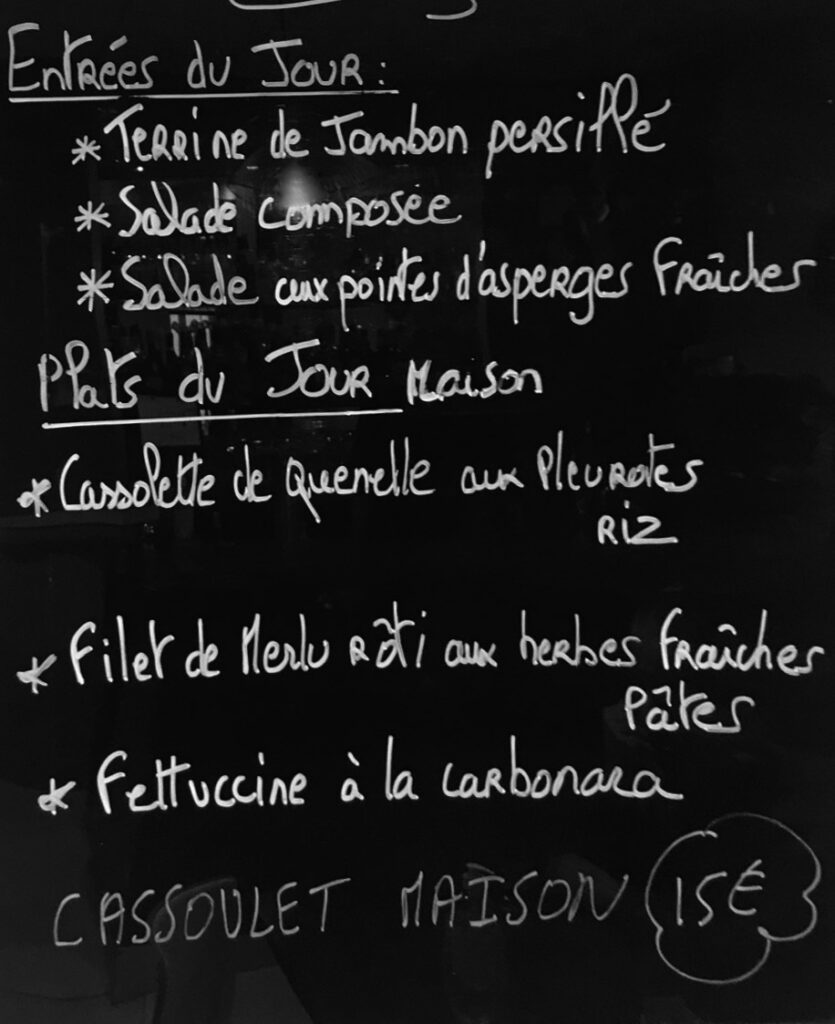 Entrées du Jour :
* Terrine de Jambon persillé
* Salade composée
* Salade aux pointes d'asperges fraîches
Plats du Jour Maison
* Cassolette de quenelle aux pleurotes
Riz
* Filet de Merlu rôti aux herbes fraîches
Pâtes
* Fettuccine à la carbonara
CASSOULET MAISON 15€